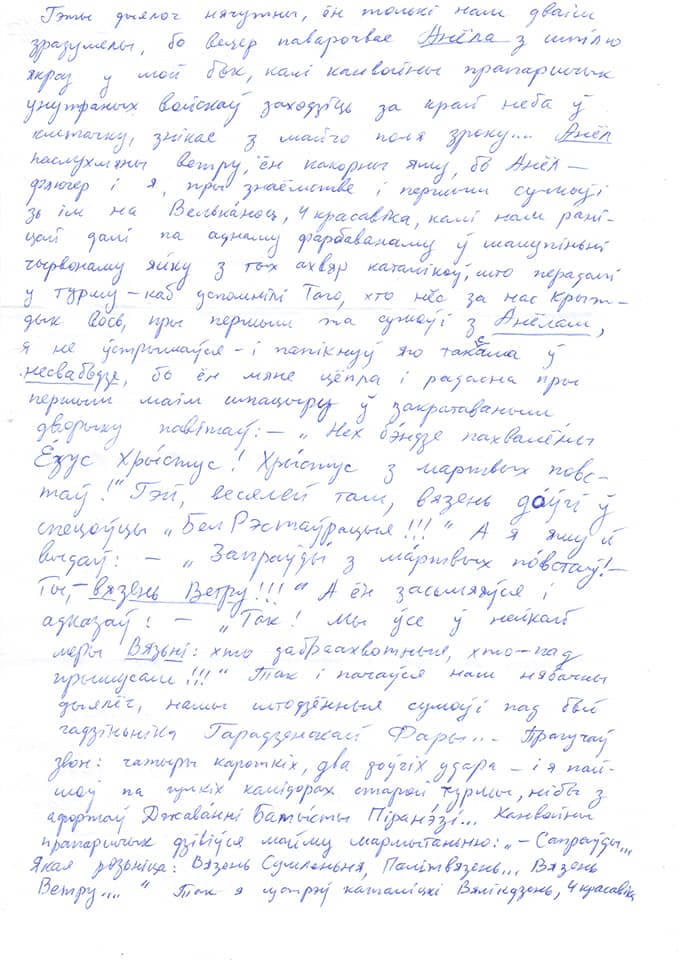 Гэты дыялог нячутны, ён толькі нам дваім
зразумелы, бо вецер паварочвае Анёла з шпілю
якраз у мой бок, калі канвойны прапаршчык
унутраных войскаў заходзіць за край неба ў
клетачку, знікае з майго поля зроку... Анёл
паслухмяны ветру, ён пакорны яму, бо Анёл —
флюгер і я, пры знаёмстве і першым сумоўі
зь ім на Вельканоц, 4 красавіка, калі нам рані-
цай далі па аднаму фарбаванаму ў шалупіньні
чырвонаму яйку з тых ахвяр каталікоў, што перадалі
у турму — каб успомнілі Таго, хто нёс за нас Крыж —
дык вось, пры першым та сумоўі з Анёлам,
я не ўстрымаўся — і папікнуў яго таксама ў
несвабодзе, бо ён мяне цёпла і радасна пры
першым маім шпацыры ў закратаваным
дворыку павітаў: — „Нех бэндзе пахвалёны
Езус Хрыстус! Хрыстус з мартвых повс-
таў!" Гэй, веселей там, вязень доўгі ў
спецоўцы „БелРэстаўрацыя!!!" А я яму й
выдаў: — „Запраўды з мартвых повстаў! —
Ты, — вязень Ветру!!!" А ён засьмяяўся і
адказаў: — „Так! Мы ўсе ў нейкай
меры Вязьні: хто дабраахвотныя, хто — пад
прымусам!!!" Так і пачаўся наш нябачны
дыялёг, нашы штодзённыя сумоўі пад бой
гадзіньніка Гарадзенскай Фары... Прагучаў
звон: чатыры кароткіх, два доўгіх удара — і я пай-
шоў па гулкіх калідорах старой турмы, нібы з
афортаў Джаванні Батысты Піранэзі... Канвойны
прапаршчык дзівіўся майму мармытаньню: „— Сапраўды...
Якая розьніца: Вязень Сумленьня, Палітвязень... Вязень
Ветру..." Так я устрэў каталіцкі Вялікдзень, 4 красавіка